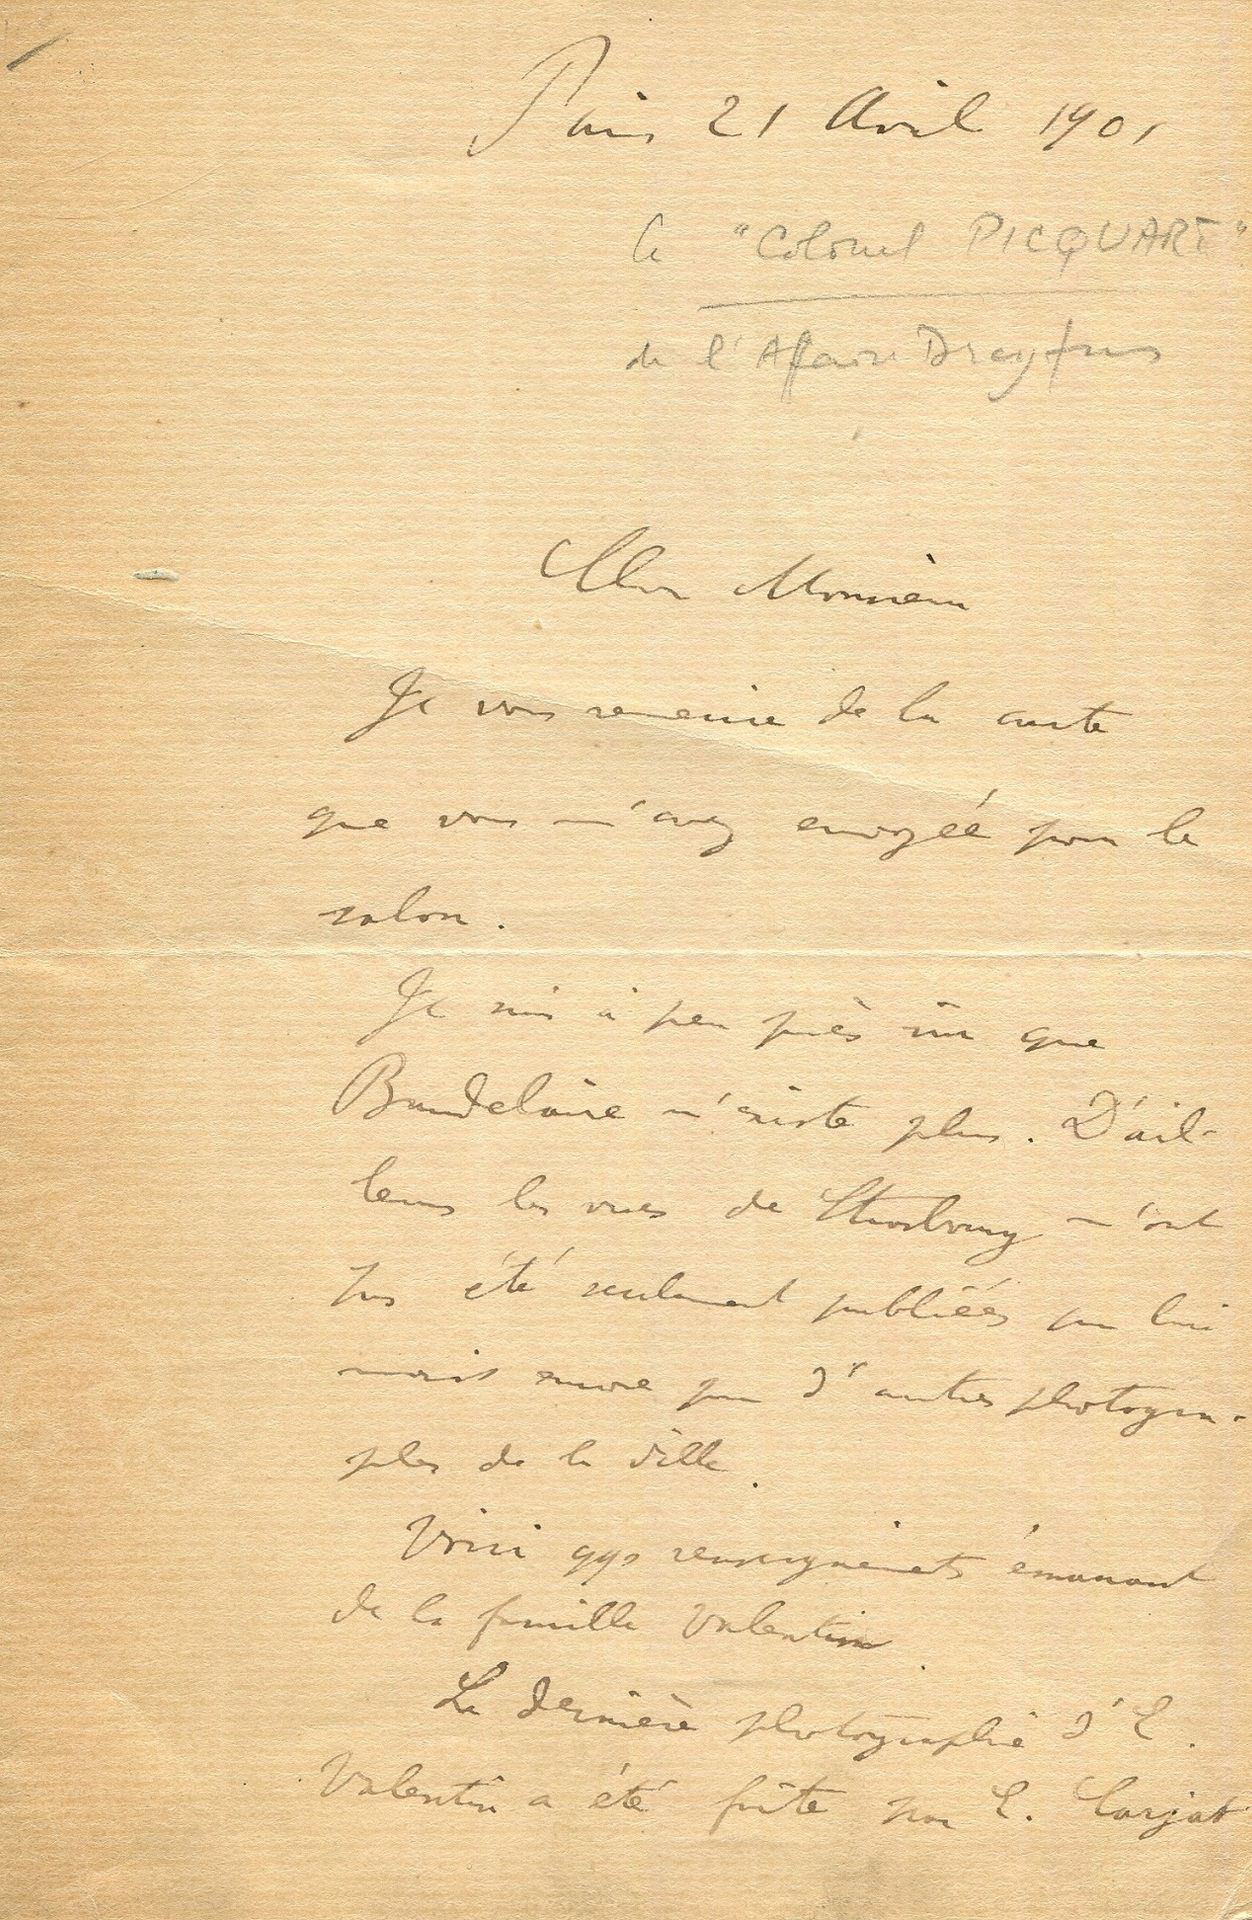 Paris 21 Avril 1901
le "Colonel PICQUART"
de l'Affaire Dreyfus
Cher Monsieur
Je vous remercie de la carte
que vous m'avez envoyée pour le
salon.
Je suis à peu près sûr que
Baudelaire n'existe plus. D'ail-
leurs les vues de Strasbourg n'ont
pas été seulement publiées par lui
mais encore par d'autres photogra-
phes de la ville.
Voici qqs renseignements émanant
de la famille Valentin.
La dernière photographie d'E.
Valentin a été faite par E. Carjat